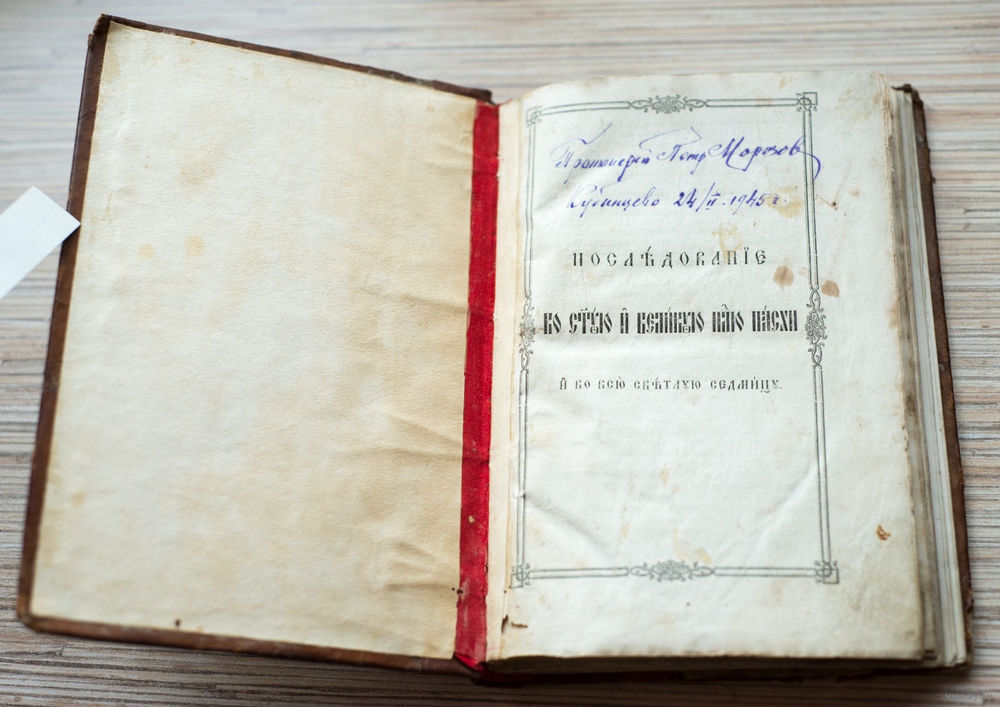 Протоиерей Петр Морозов
24/II. 1945 г.
ПОСЛѢ́ДОВАНЇЕ
ВО СТ҃У́Ю И҆ ВЕЛИ́КУЮ НЛ҃Ю ПА́СХИ
И҆ ВО ВСЮ̀ СВѢ́ТЛУЮ СЕДМИ́ЦУ.